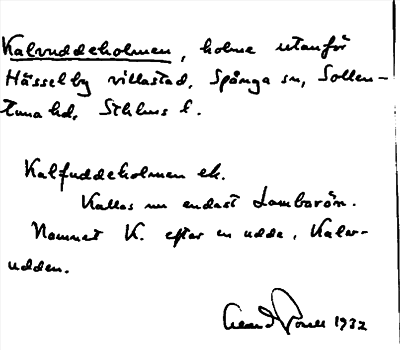 Kalvuddeholmen, holme utanför
Hässelby villastad, Spånga sn, Sollen-
tuna hd, Sthlms l.
Kalfuddeholmen ek.
Kallas nu endast Lamborön.
Namnet K. efter en udde, Kalv-
udden.
1932